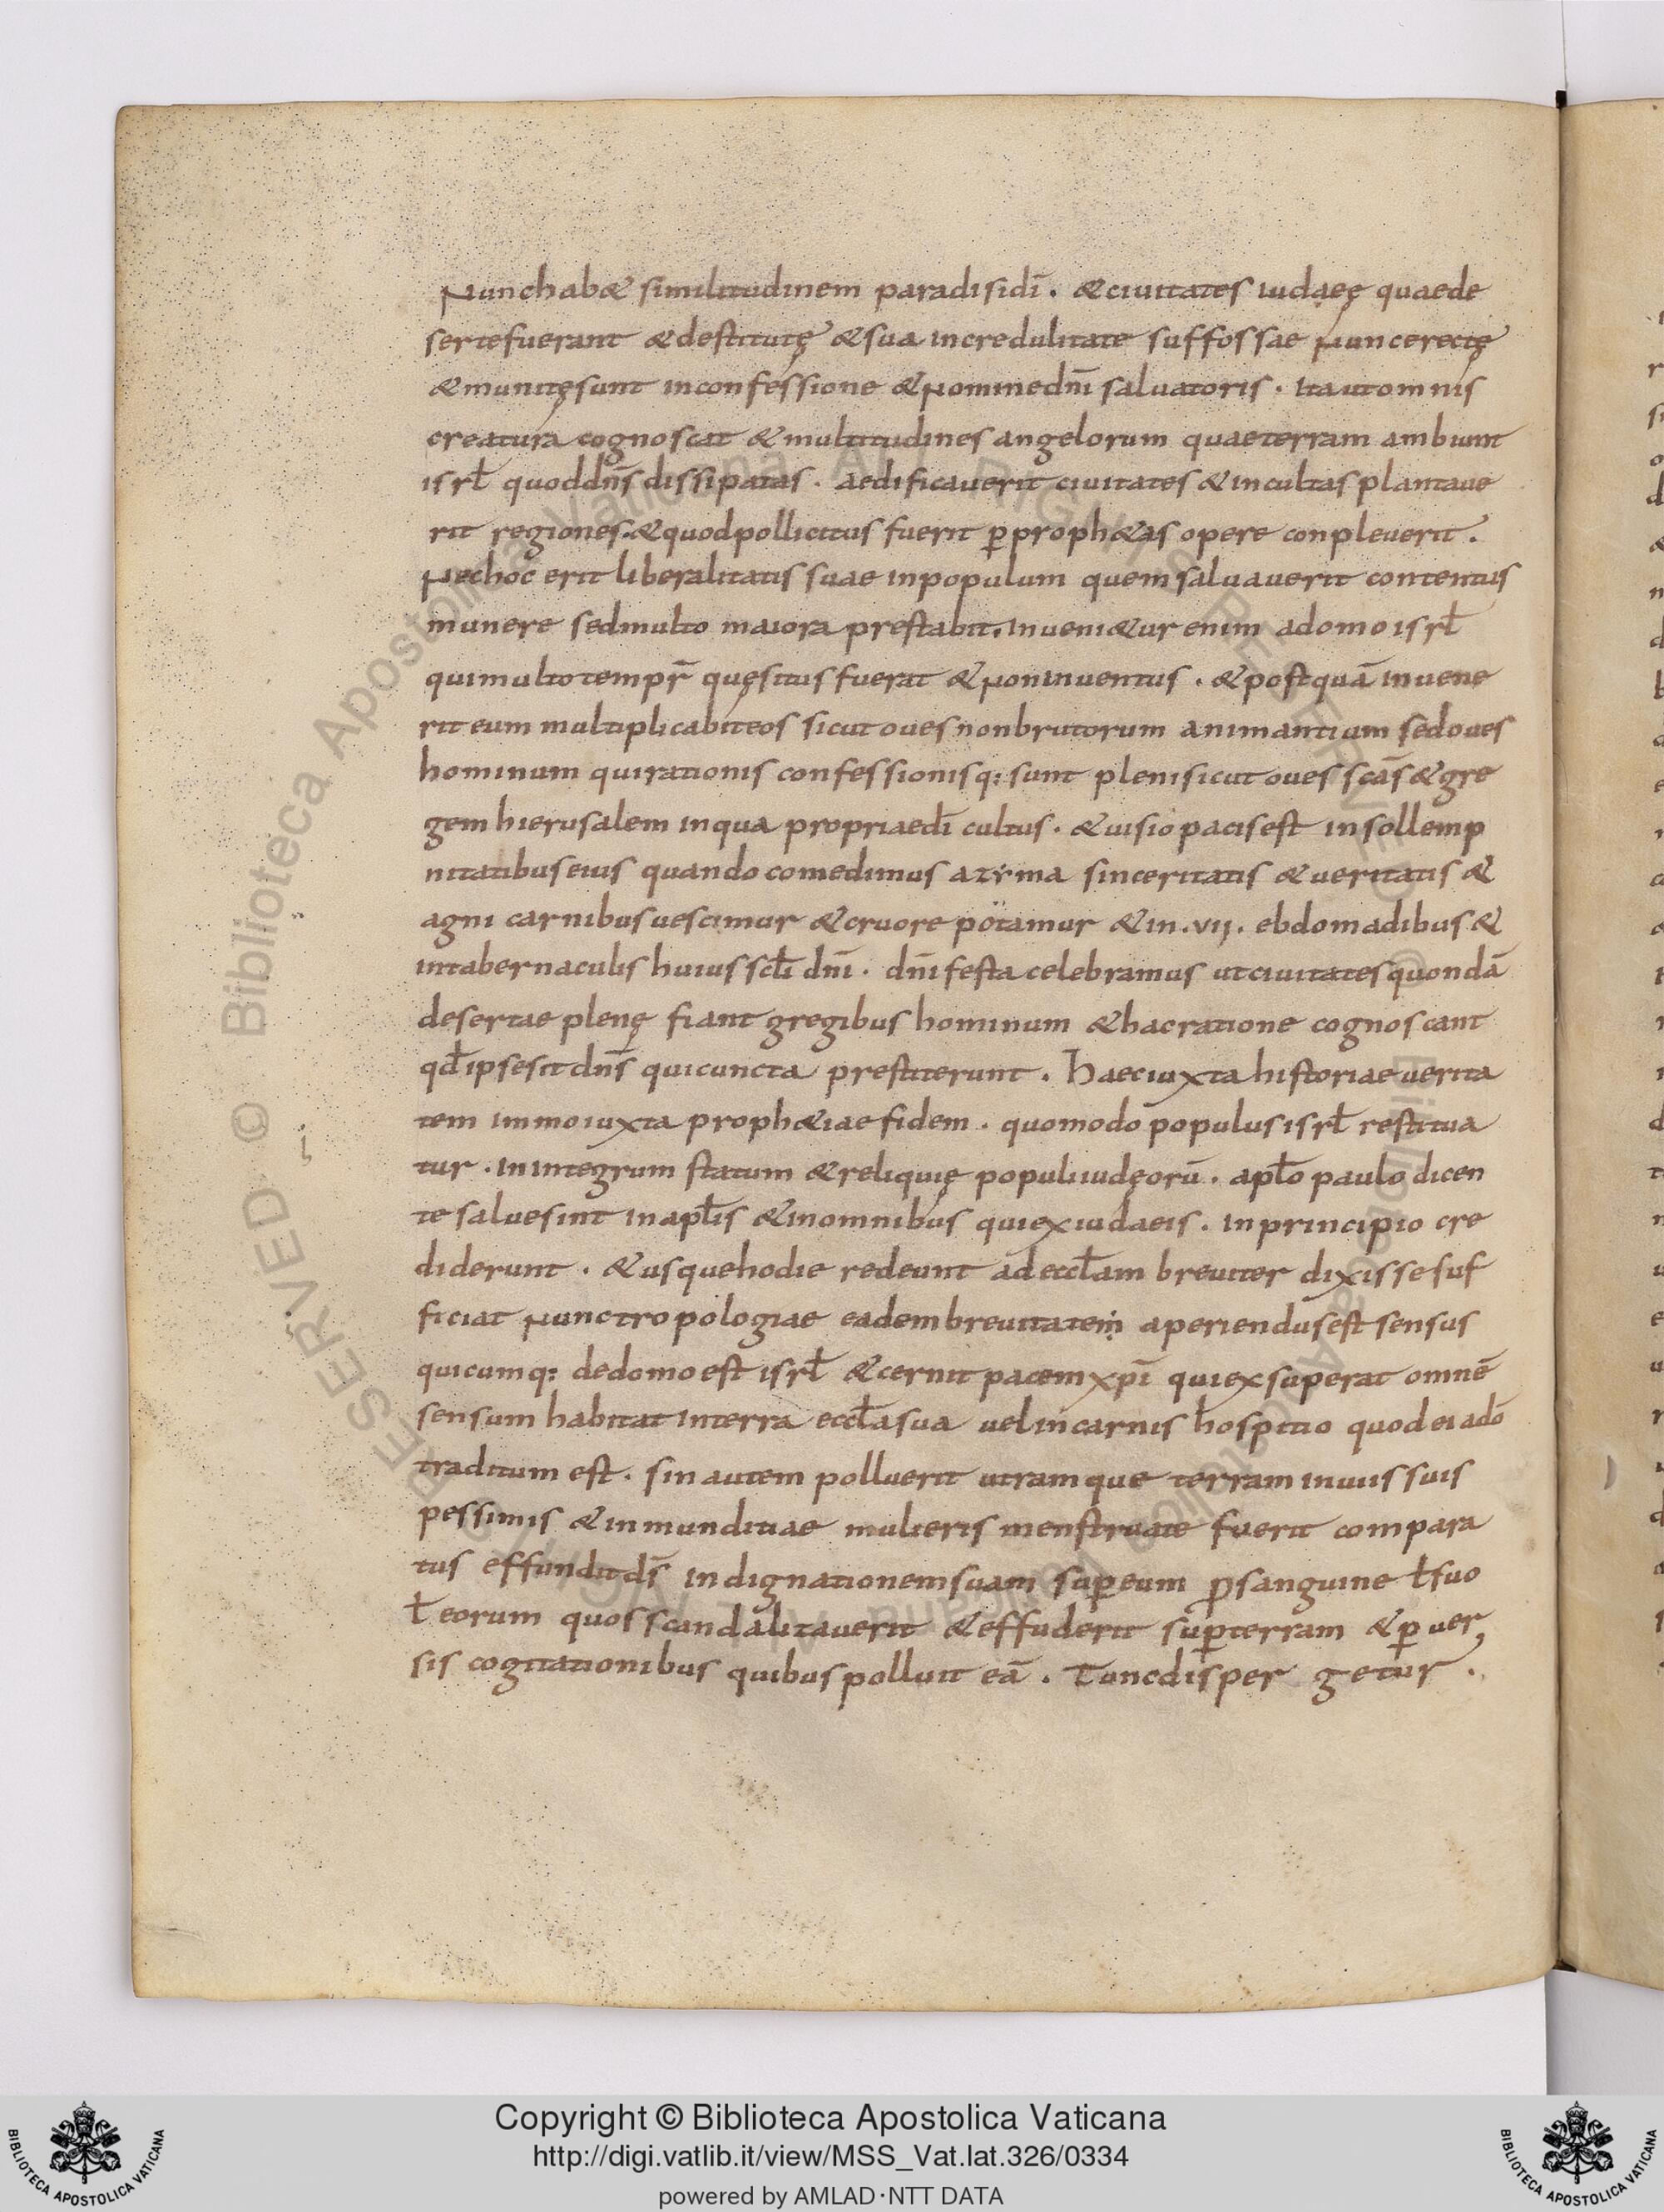 Nunc habet similitudinem paradisi dī. & ciuitates iudaeę quae de
serte fuerant & destitutę & sua incredulitate suffossae Nunc erectę
& munitę sunt in confessione & Nomine dnī saluatoris. Ita ut omnis
creatura cognoscat & multitudines angelorum quae terram ambiunt
isrł quod dns̄ dissipatas. aedificauerit ciuitates & incultas plantaue
rit regiones. & quod pollicitus fuerit ꝑ proph&as opere conpleuerit.
Nec hoc erit liberalitatis suae in populum quem saluauerit contentus
munere sed multo maiora prestabit. Inueni&ur enim a domo isrł
qui multo tempr̄ quęsitus fuerat & Non inuentus. & postquā inuene
rit eum multiplicabit eos sicut oues non brutorum animantium sed oues
hominum qui rationis confessionisq: sunt pleni sicut oues scās & gre
gem hierusalem in qua propriae dī cultus. & uisio pacis est in sollemp
nitatibus eius quando comedimus azyma sinceritatis & ueritatis &
agni carnibus uescimur & cruore potamur & in .vii. ebdomadibus &
in tabernaculis huius scłi dnī. dnī festa celebramus ut ciuitates quondā
desertae plenę fiant gregibus hominum & hac ratione cognoscant
qđ ipse sit dns̄ qui cuncta prestiterunt. Haec iuxta historiae uerita
tem immo iuxta proph&iae fidem. quomodo populus isrł restitua
tur. In integrum statum & reliquię populi iudęorū. apło paulo dicen
te salue sint in apłis & in omnibus qui ex iudaeis. In principio cre
diderunt. & usque hodie redeunt ad eccłam breuiter dixisse suf
ficiat Nunc tropologiae eadem breuitatem aperiendus est sensus
quicumq: de domo est isrł & cernit pacem xpī qui exsuperat omnē
sensum habitat In terra eccła sua uel in carnis hospitio quod ei a dō
traditum est. sin autem polluerit utramque terram in uiis suis
pessimis & inmunditiae mulieris menstruate fuerit compara
tus effundit ds̄ indignationem suam suꝑ eum ꝓ sanguine ł suo
ł eorum quos scandalizauerit & effuderit suꝑ terram & ꝑ uer
sis cogitationibus quibus polluit eā. Tunc dispergetur.
Copyright © Biblioteca Apostolica Vaticana
http://digi.vatlib.it/view/MSS_Vat.lat.326/0334
powered by AMLAD·NTT DATA